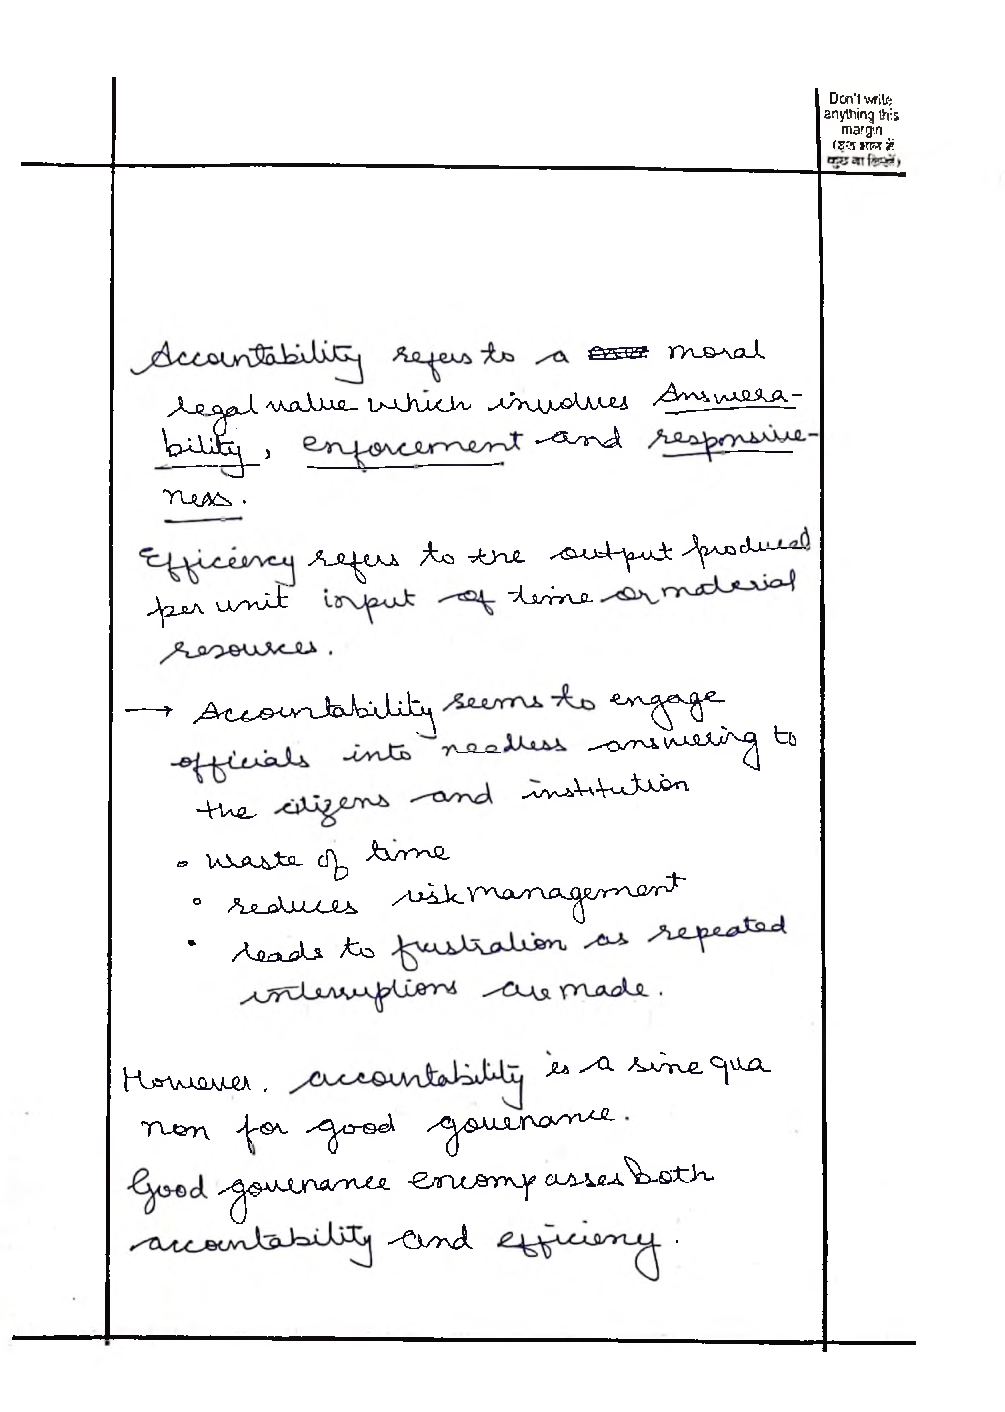 Don't write
anything this
margin
(इस भाग में
कुछ ना लिखें)
Accountability refers to a moral
legal value which involves Answera-
bility, enforcement and responsive-
ness.
Efficiency refers to the output produced
per unit input of time or material
resources.
→ Accountability seems to engage
officials into needless answering to
the citizens and institution
• waste of time
• reduces risk management
• leads to frustration as repeated
interruptions are made.
However, accountability is a sine qua
non for good governance.
Good governance encompasses both
accountability and efficieny.